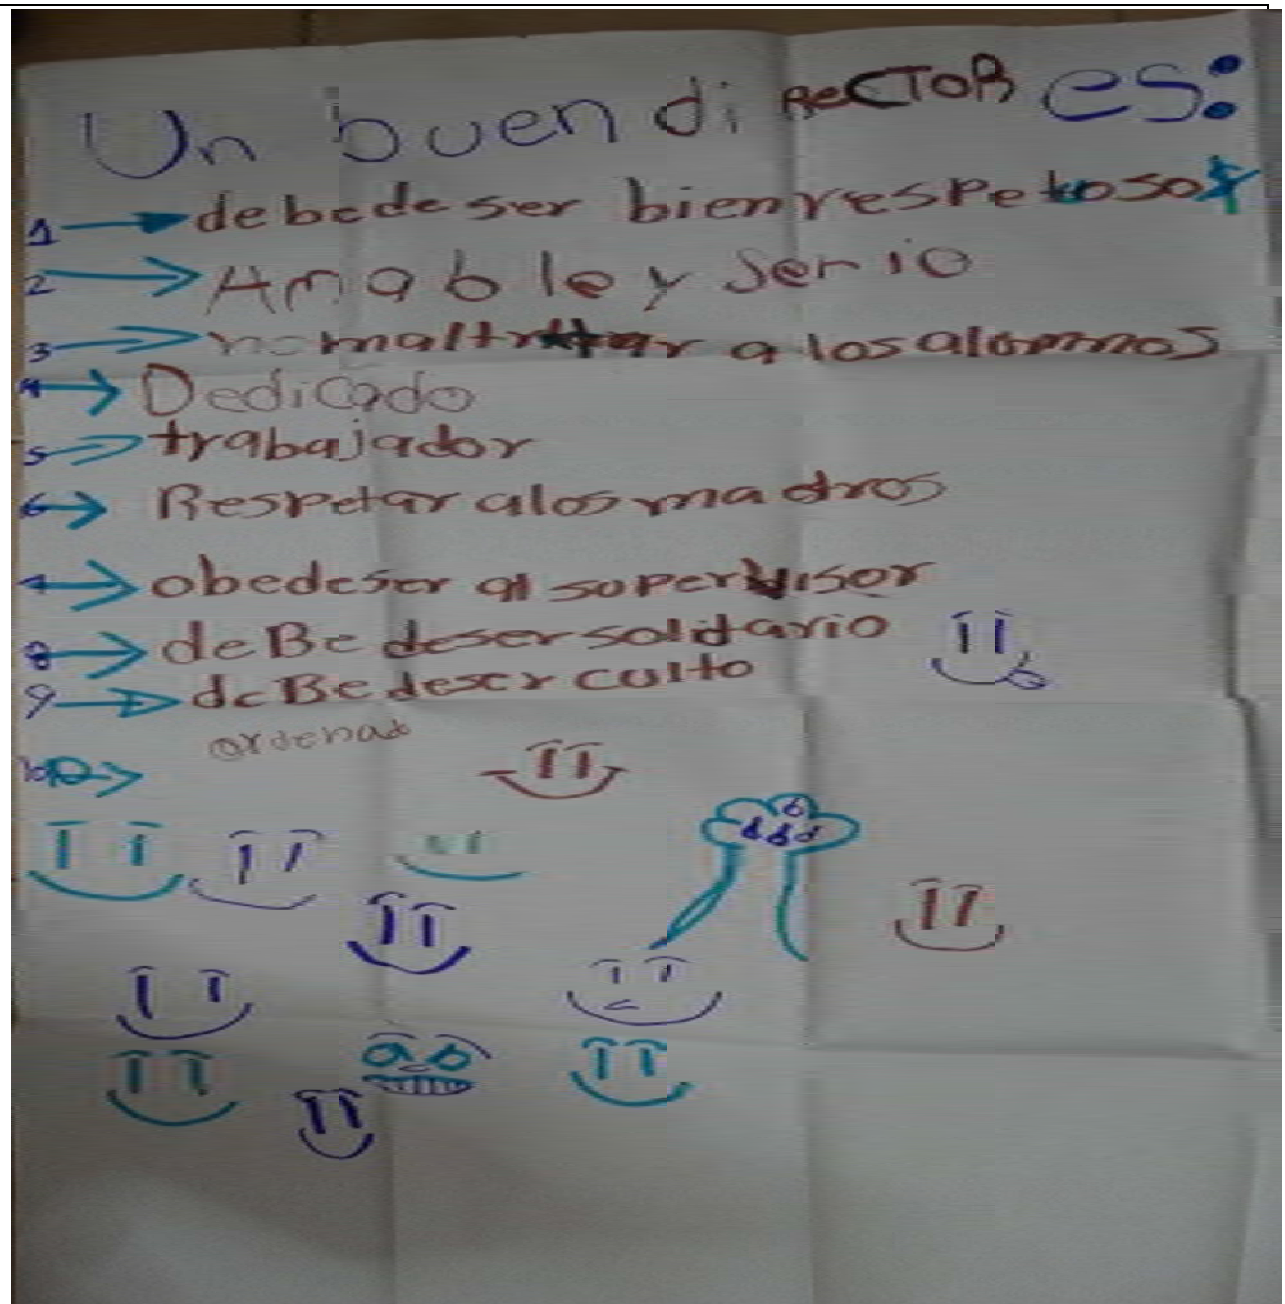 Un buen diRECTOR es:
1 → debe de ser bien respetoso
2 → Amable y Serio
3 → no maltratar a los alomnos
4 → Dedicado
5 → trabajador
6 → Respetar a los madros
7 → obedeser al supervisor
8 → deBe deser solidario
9 → deBe deser culto
10 → ordenado